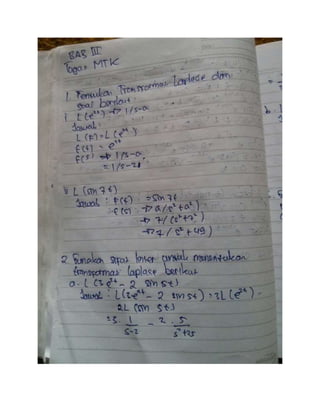 BAB III
Tugas MTK
1. Temukan Transformasi Laplace dari
soal berikut
i. L(e²ᵗ) → 1/s-a
Jawab:
L(t) = L(e²ᵗ)
f(t) = e²ᵗ
f(s) → 1/s-a
= 1/s-2
ii. L(sin 7t)
Jawab : f(t) = sin 7t
f(s) → a/(s²+a²)
→ 7/(s²+7²)
→ 7/(s²+49)
2. Gunakan sifat linier untuk menentukan
transformasi laplace berikut
a. L(3e²ᵗ - 2 sin 5t)
Jawab: L(3e²ᵗ - 2 sin 5t) = 3L(e²ᵗ) -
2L(sin 5t)
= 3. 1/s-2 - 2. 5/s²+25